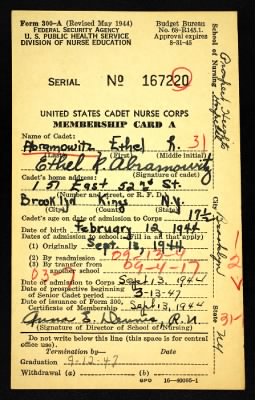 Form 300-A (Revised May 1944)
FEDERAL SECURITY AGENCY
U. S. PUBLIC HEALTH SERVICE
DIVISION OF NURSE EDUCATION
Budget Bureau
No. 68-R145.1.
Approval expires
8-31-45
SERIAL No 167220
UNITED STATES CADET NURSE CORPS
MEMBERSHIP CARD A
Name of Cadet:
Abramowitz Ethel R. 31
(Last) (First) (Middle initial)
Ethel R. Abramowitz
(Signature of cadet)
Cadet's home address:
151 East 52nd St.
(Number, street, or R. F. D.)
Brooklyn Kings N.Y.
Cadet's age on date of admission to Corps 17½
Date of birth February 12, 1944
Dates of admission to school (fill in all that apply)
(1) Originally Sept. 13, 1944
(2) By readmission 09-13-6
(3) By transfer from 09-4-17
school
Date of admission to Corps Sept. 13, 1944
Date of prospective beginning of
Senior Cadet period 3-13-47
Date of issuance of Form 300,
Certificate of Membership Sept. 13, 1944
Anna E. R.N
(Signature of Director of School of Nursing)
Do not write below this line (this space is for central
office use).
Termination by— Date
Graduation 9-12-47
Withdrawal (a)
GPO 16-40095-1
School of Nursing Prospect Heights Hospital
City Brooklyn
State NY